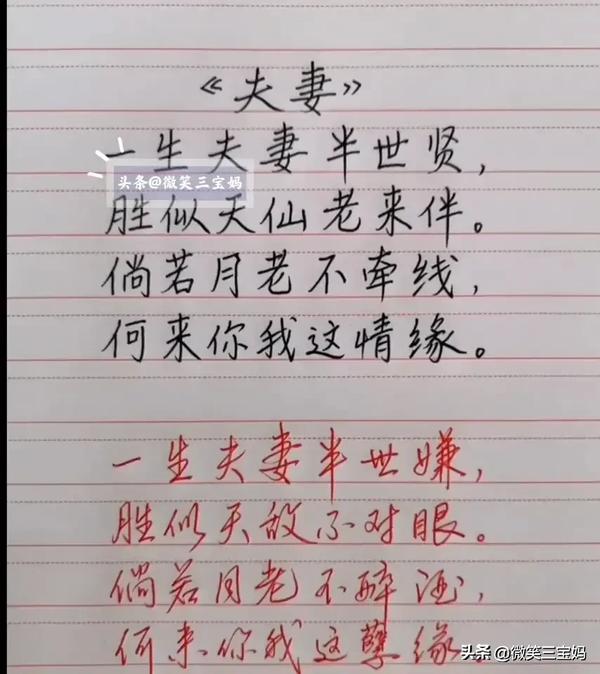 《夫妻》
一生夫妻半世贤，
头条@微笑三宝妈
胜似天仙老来伴。
倘若月老不牵线，
何来你我这情缘。
一生夫妻半世嫌，
胜似天敌不对眼。
倘若月老不醉酒，
何来你我这孽缘。
头条@微笑三宝妈